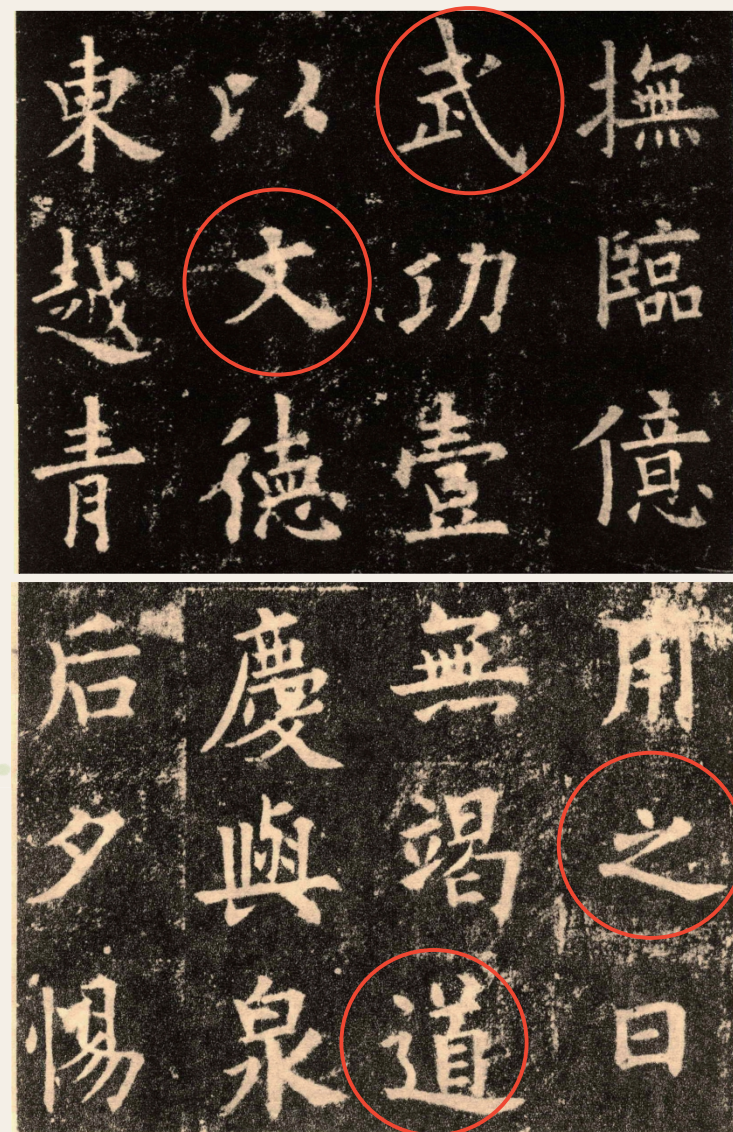 撫臨億
武功壹
以文德
東越青
用之日
無竭道
慶與泉
后夕惕